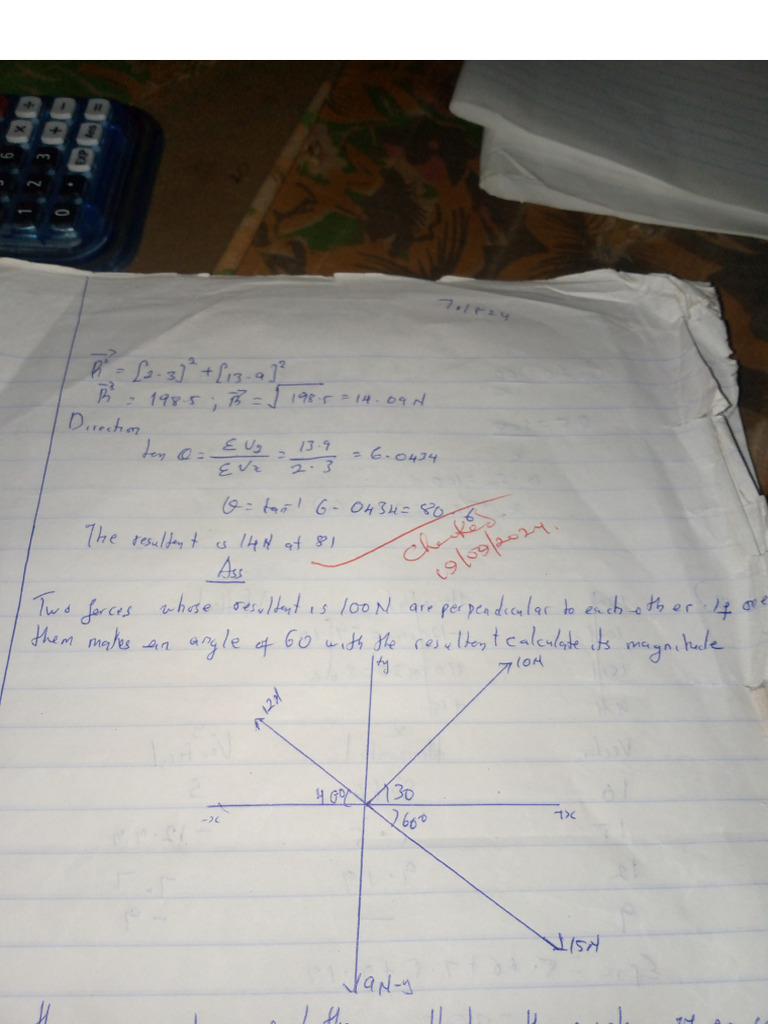 R² = [2.3]² + [13.9]²
R² = 198.5 ; R = √198.5 = 14.09N
Direction
tan θ = ΣVy/ΣVx = 13.9/2.3 = 6.0434
θ = tan⁻¹ 6.0434 = 80.6
The resultant is 14N at 81
Checked
19/09/2024.
Ass
Two forces whose resultant is 100N are perpendicular to each other. If one
them makes an angle of 60 with the resultant calculate its magnitude
+y
10N
12N
40°
30
-x
+x
60°
15N
9N-y